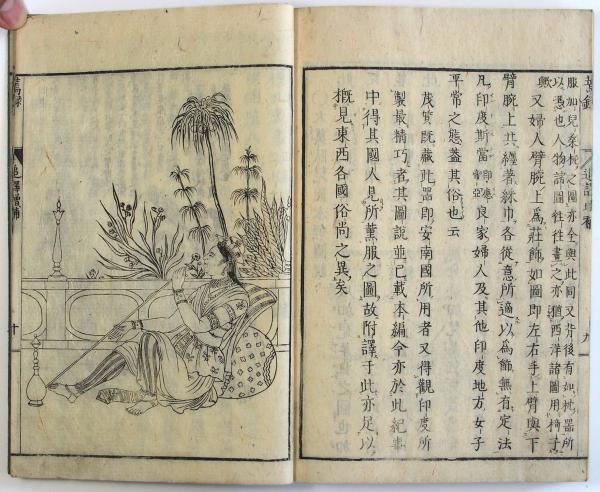 蔫錄 追譯增補 九
服加兒之圖亦全與此同又背後有如枕器所
以憑也人物諸圖往往畫之亦猶西洋諸圖用椅子
歟又婦人臂腕上爲莊飾如圖即左右手上臂與下
臂腕上共纏著絲巾各從意所適以爲飾無有定法
凡印度斯當良家婦人及其他印度地方女子
平常之態蓋其俗也云
茂質既藏此器即安南國所用者又得觀印度所
製最精巧者其圖說並已載本編今亦於此紀事
中得其國人見所薰服之圖故附譯于此亦足以
概見東西各國俗尚之異矣
蔫錄 追譯增補 十